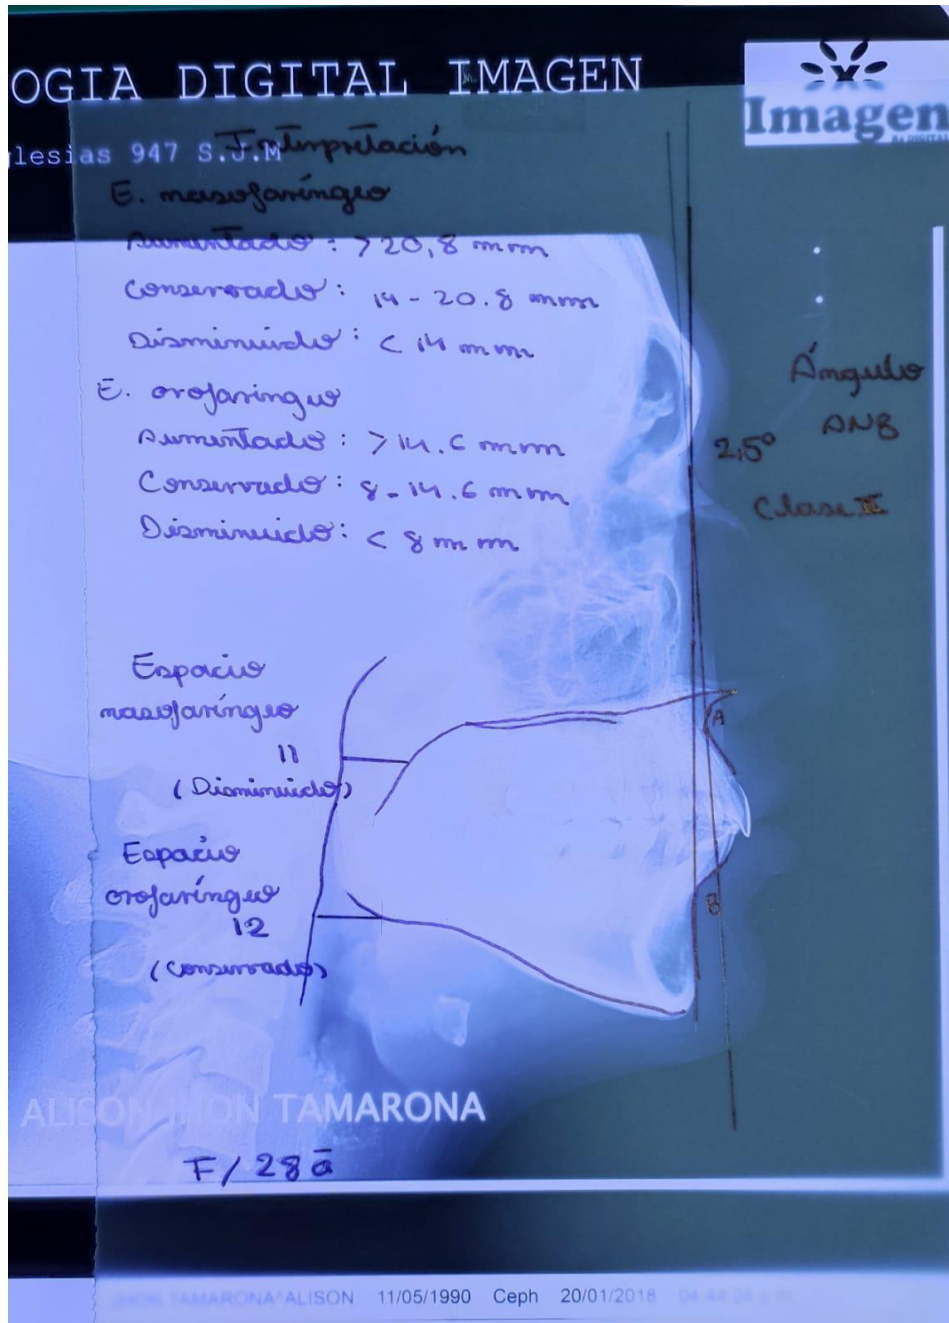 OGIA DIGITAL IMAGEN
Imagen
lesias 947 S.J.M
Interpretación
E. nasofaríngeo
Aumentado: >20,8 mm
Conservado: 14-20.8 mm
Disminuido: < 14 mm
E. orofaringeo
Aumentado: >14.6 mm
Conservado: 8-14.6 mm
Disminuido: < 8 mm
Ángulo
ANB
2,5°
Clase II
Espacio
nasofaríngeo
11
(Disminuido)
A
Espacio
orofaríngeo
12
(Conservado)
B
ALISON JHON TAMARONA
F/28 ā
JHON TAMARONA^ALISON 11/05/1990 Ceph 20/01/2018